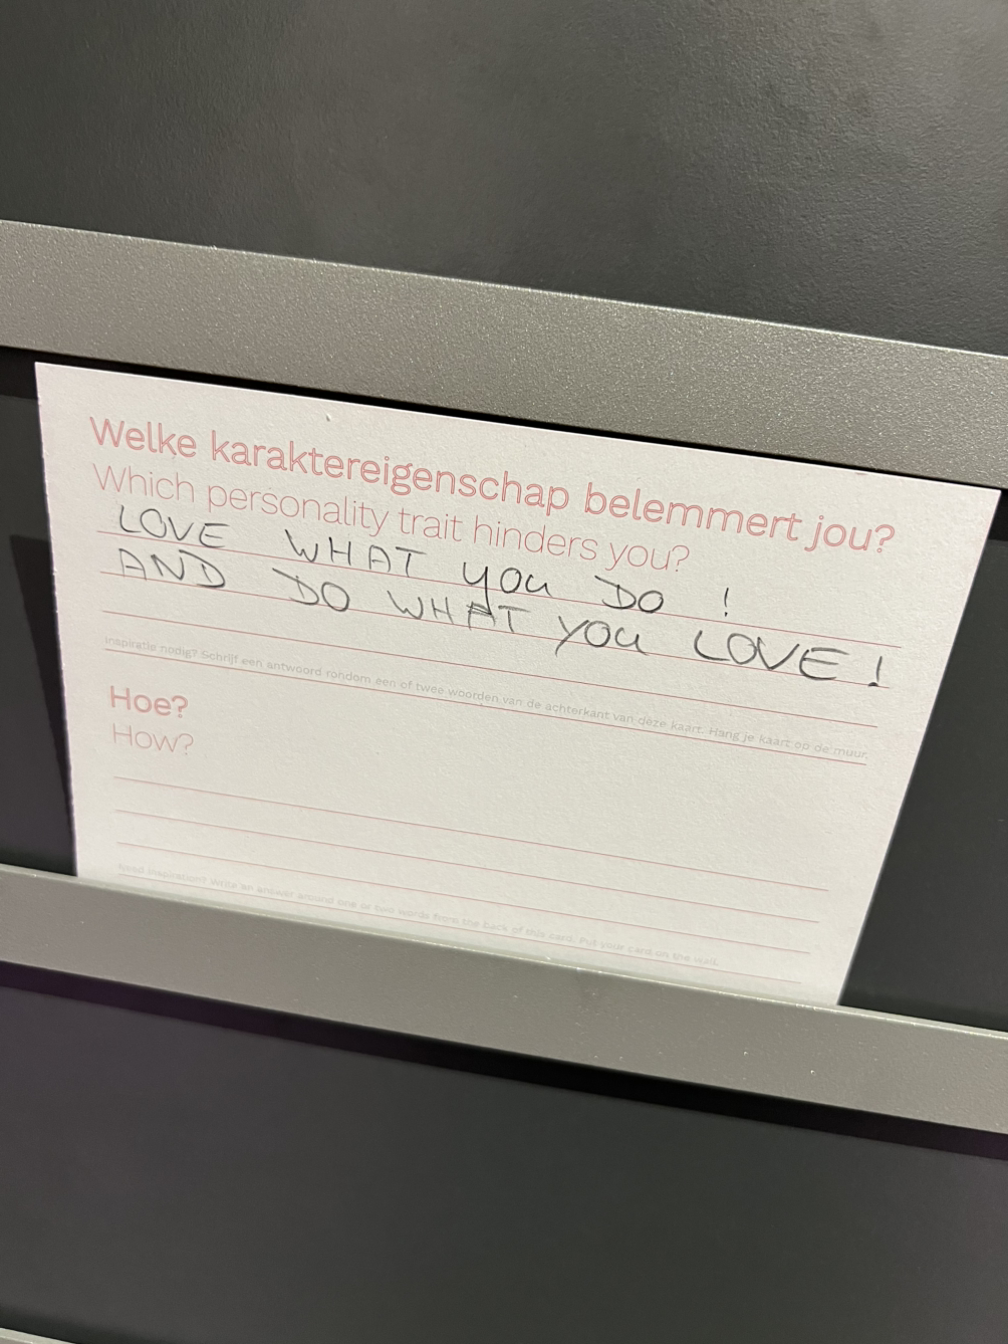 Welke karaktereigenschap belemmert jou?
Which personality trait hinders you?
LOVE WHAT you DO !
AND DO WHAT you LOVE !
Inspiratie nodig? Schrijf een antwoord rondom een of twee woorden van de achterkant van deze kaart. Hang je kaart op de muur.
Hoe?
How?
Need inspiration? Write an answer around one or two words from the back of this card. Put your card on the wall.